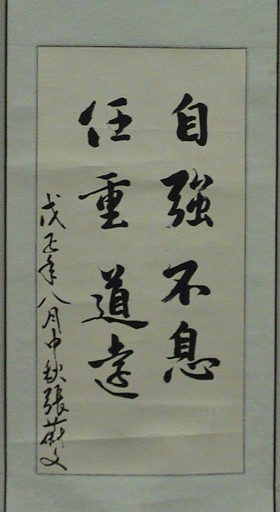 自強不息
任重道遠
戊子年八月中秋張文